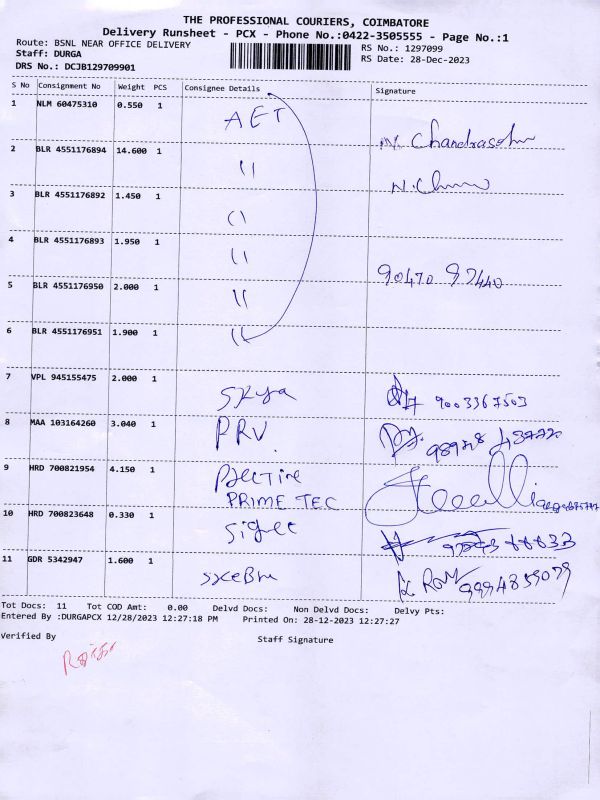 THE PROFESSIONAL COURIERS, COIMBATORE
Delivery Runsheet - PCX - Phone No.:0422-3505555 - Page No.:1
Route: BSNL NEAR OFFICE DELIVERY RS No.: 1297099
Staff: DURGA RS Date: 28-Dec-2023
DRS No.: DCJB129709901
S No Consignment No Weight PCS Consignee Details Signature
1 NLM 60475310 0.550 1 AET
2 BLR 4551176894 14.600 1 "
3 BLR 4551176892 1.450 1 "
4 BLR 4551176893 1.950 1 "
5 BLR 4551176950 2.000 1 "
6 BLR 4551176951 1.900 1 "
7 VPL 945155475 2.000 1 9003367503
8 MAA 103164260 3.040 1 PRV
9 HRD 700821954 4.150 1
PRIME TEC
10 HRD 700823648 0.330 1
11 GDR 5342947 1.600 1
Tot Docs: 11 Tot COD Amt: 0.00 Delvd Docs: Non Delvd Docs: Delvy Pts:
Entered By :DURGAPCX 12/28/2023 12:27:18 PM Printed On: 28-12-2023 12:27:27
Verified By Staff Signature